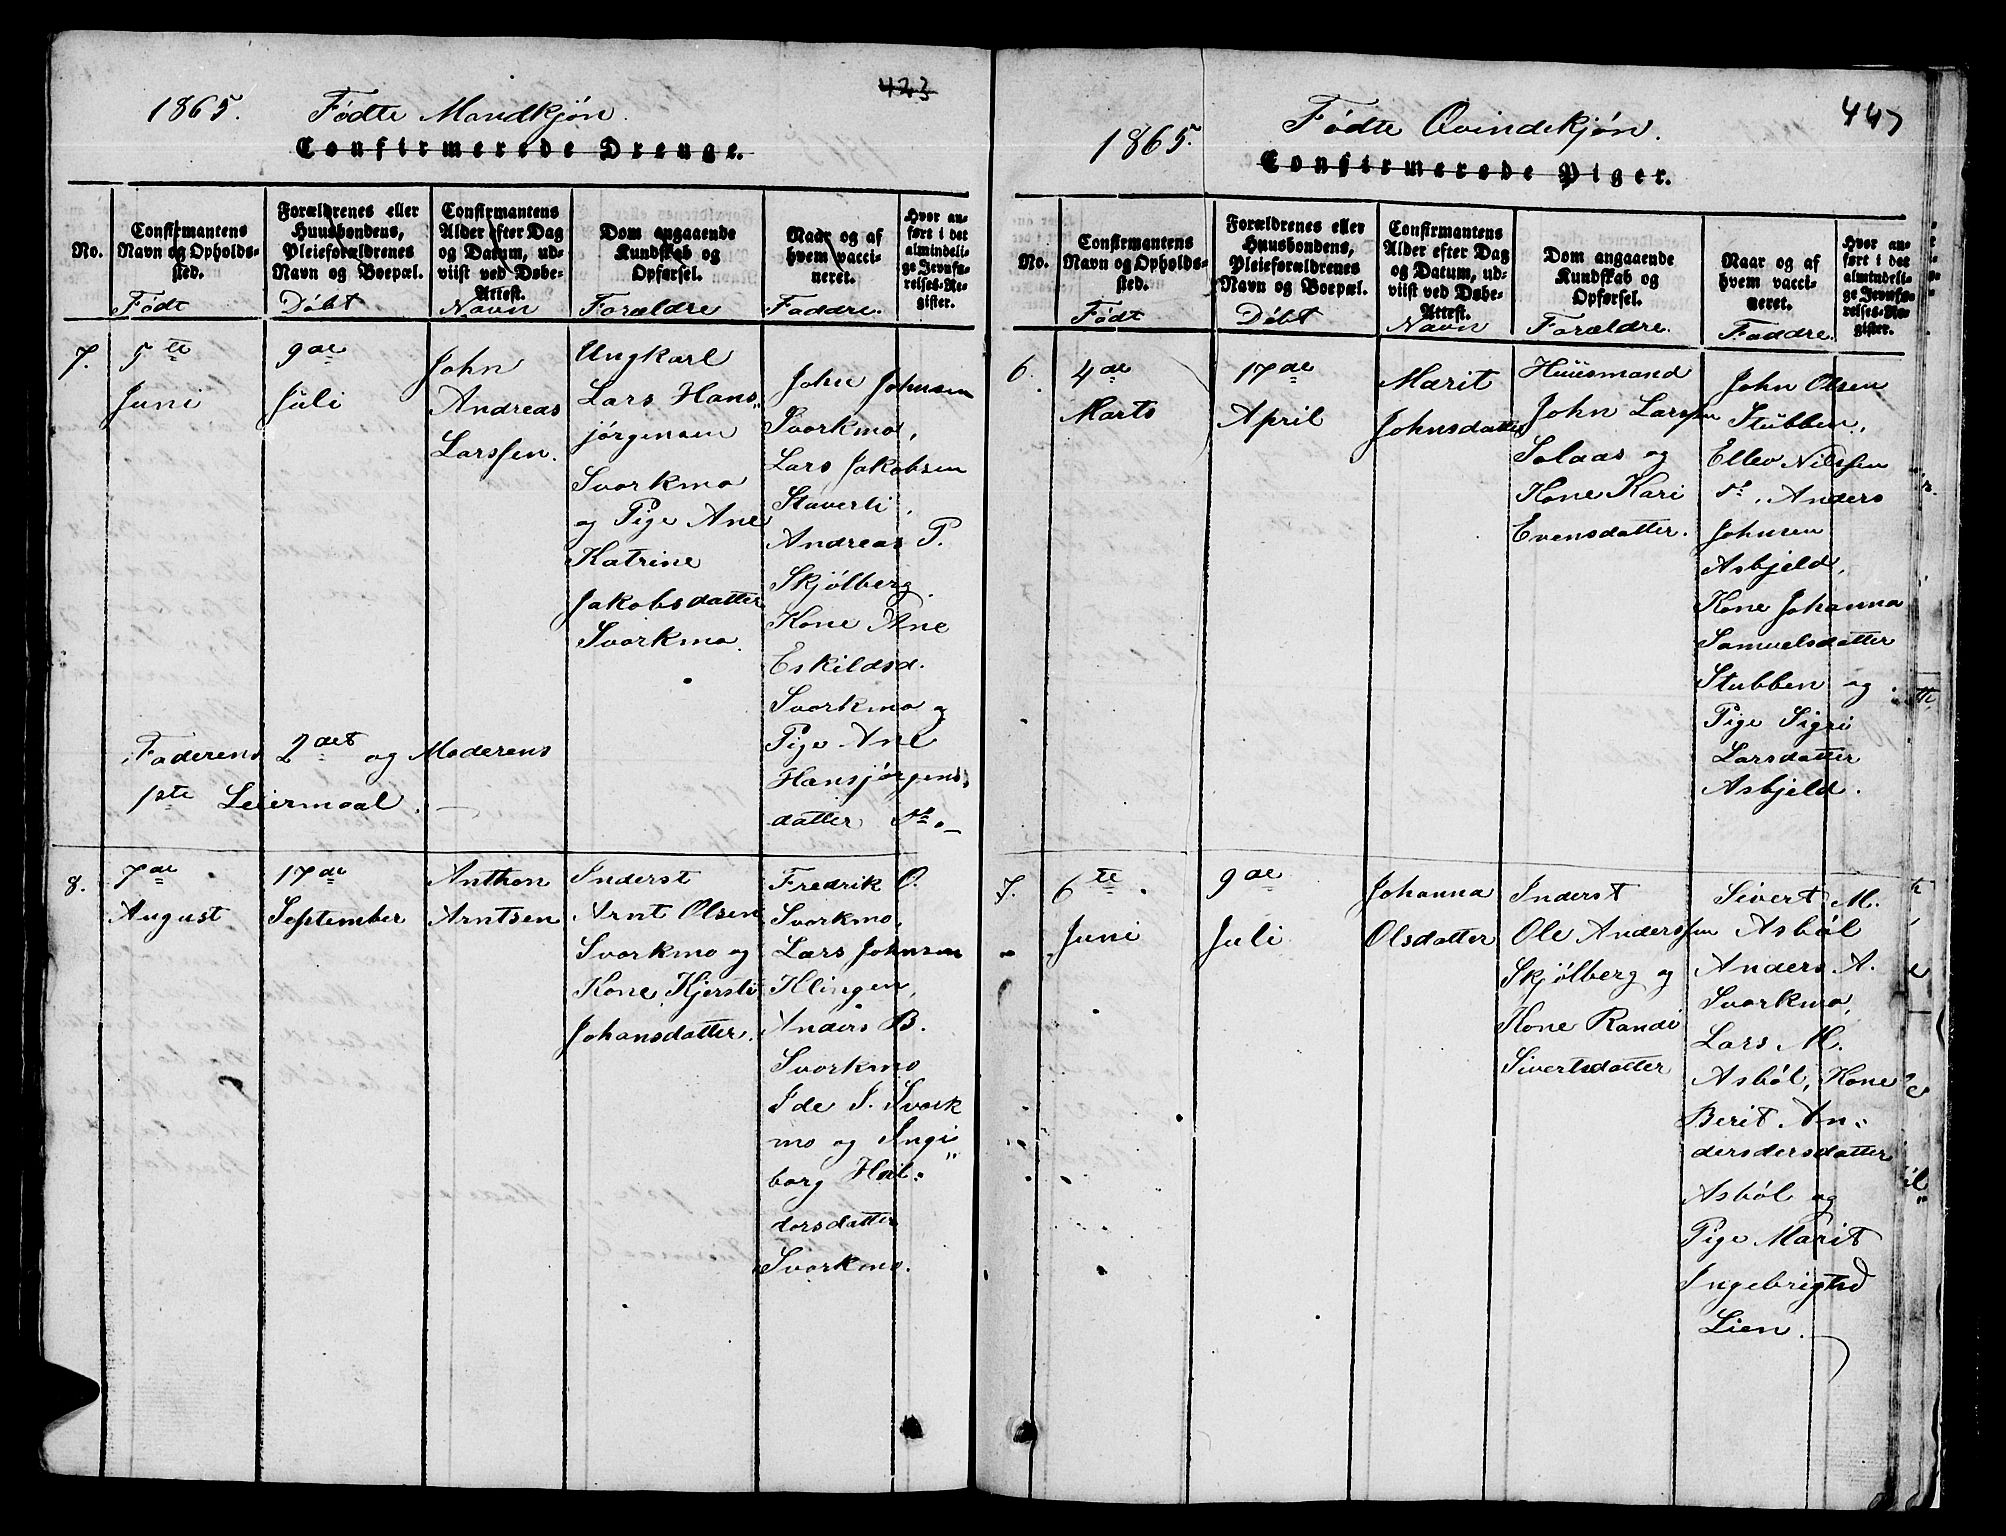 423
1865. Födte Mandkjön.
Confirmerede Drenge.
No.
Confirmantens
Navn og Opholds-
sted.
Födt
Forældrenes eller
Huusbondens,
Pleieforældrenes
Navn og Boepæl.
Döbt
Confirmantens
Alder efter Dag
og Datum, ud-
viist ved Døbe-
Attest.
Navn
Dom angaaende
Kundskab og
Opførsel.
Forældre
Naar og af
hvem vacci-
neret.
Faddre.
Hvor an-
ført i det
almindeli-
ge Jevnfø-
relses-Re-
gister.
7.
5te
Juni
9de
Juli
John
Andreas
Larssen.
Ungkarl
Lars Hans„
jörgensen
Svorkmo
og Pige Ane
Katrine
Jakobsdatter
Svorkmo.
John Johnsen
Svorkmo,
Lars Jakobsen
Staverli,
Andreas P.
Skjölberg.
Kone Ane
Eskildsd.
Svorkmo og
Pige Ane
Hansjörgens„
datter sts.
Faderens 2det og Moderens
1ste Leiermaal.
8.
7de
August
17de
September
Anthon
Arntsen
Inderst
Arnt Olsen
Svorkmo og
Kone Kjersti
Johansdatter.
Fredrik O.
Svorkmo,
Lars Johnsen
Klingen,
Anders B.
Svorkmo
Ide I. Svork
mo og Ingi
borg Hal„
dorsdatter
Svorkmo.
447
1865. Födte Qvindekjön.
Confirmerede Piger.
No.
Confirmantens
Navn og Opholds-
sted.
Födt
Forældrenes eller
Huusbondens,
Pleieforældrenes
Navn og Boepæl.
Döbt
Confirmantens
Alder efter Dag
og Datum, ud-
viist ved Døbe-
Attest.
Navn
Dom angaaende
Kundskab og
Opførsel.
Forældre.
Naar og af
hvem vacci-
neret.
Faddre.
Hvor an-
ført i det
almindeli-
ge Jevnfø-
relses-Re-
gister.
6.
4de
Marts
17de
April
Marit
Johnsdatter
Huusmand
John Larssen
Solaas og
Kone Kari
Evensdatter.
John Olsen
Stubben,
Ellev Nilssen
st, Anders
Johnsen
Asbjeld,
Kone Johanna
Samuelsdatter
Stubben og
Pige Sigri
Larsdatter
Asbjeld.
7.
6te
Juni
9de
Juli
Johanna
Olsdatter
Inderst
Ole Anderssen
Skjölberg og
Kone Randi
Sivertsdatter
Sivert M.
Asböl
Anders A.
Svorkmo,
Lars M.
Asböl, Kone
Berit An„
dersdersdatter
Asböl og
Pige Marit
Ingebrigtsd
Lien.